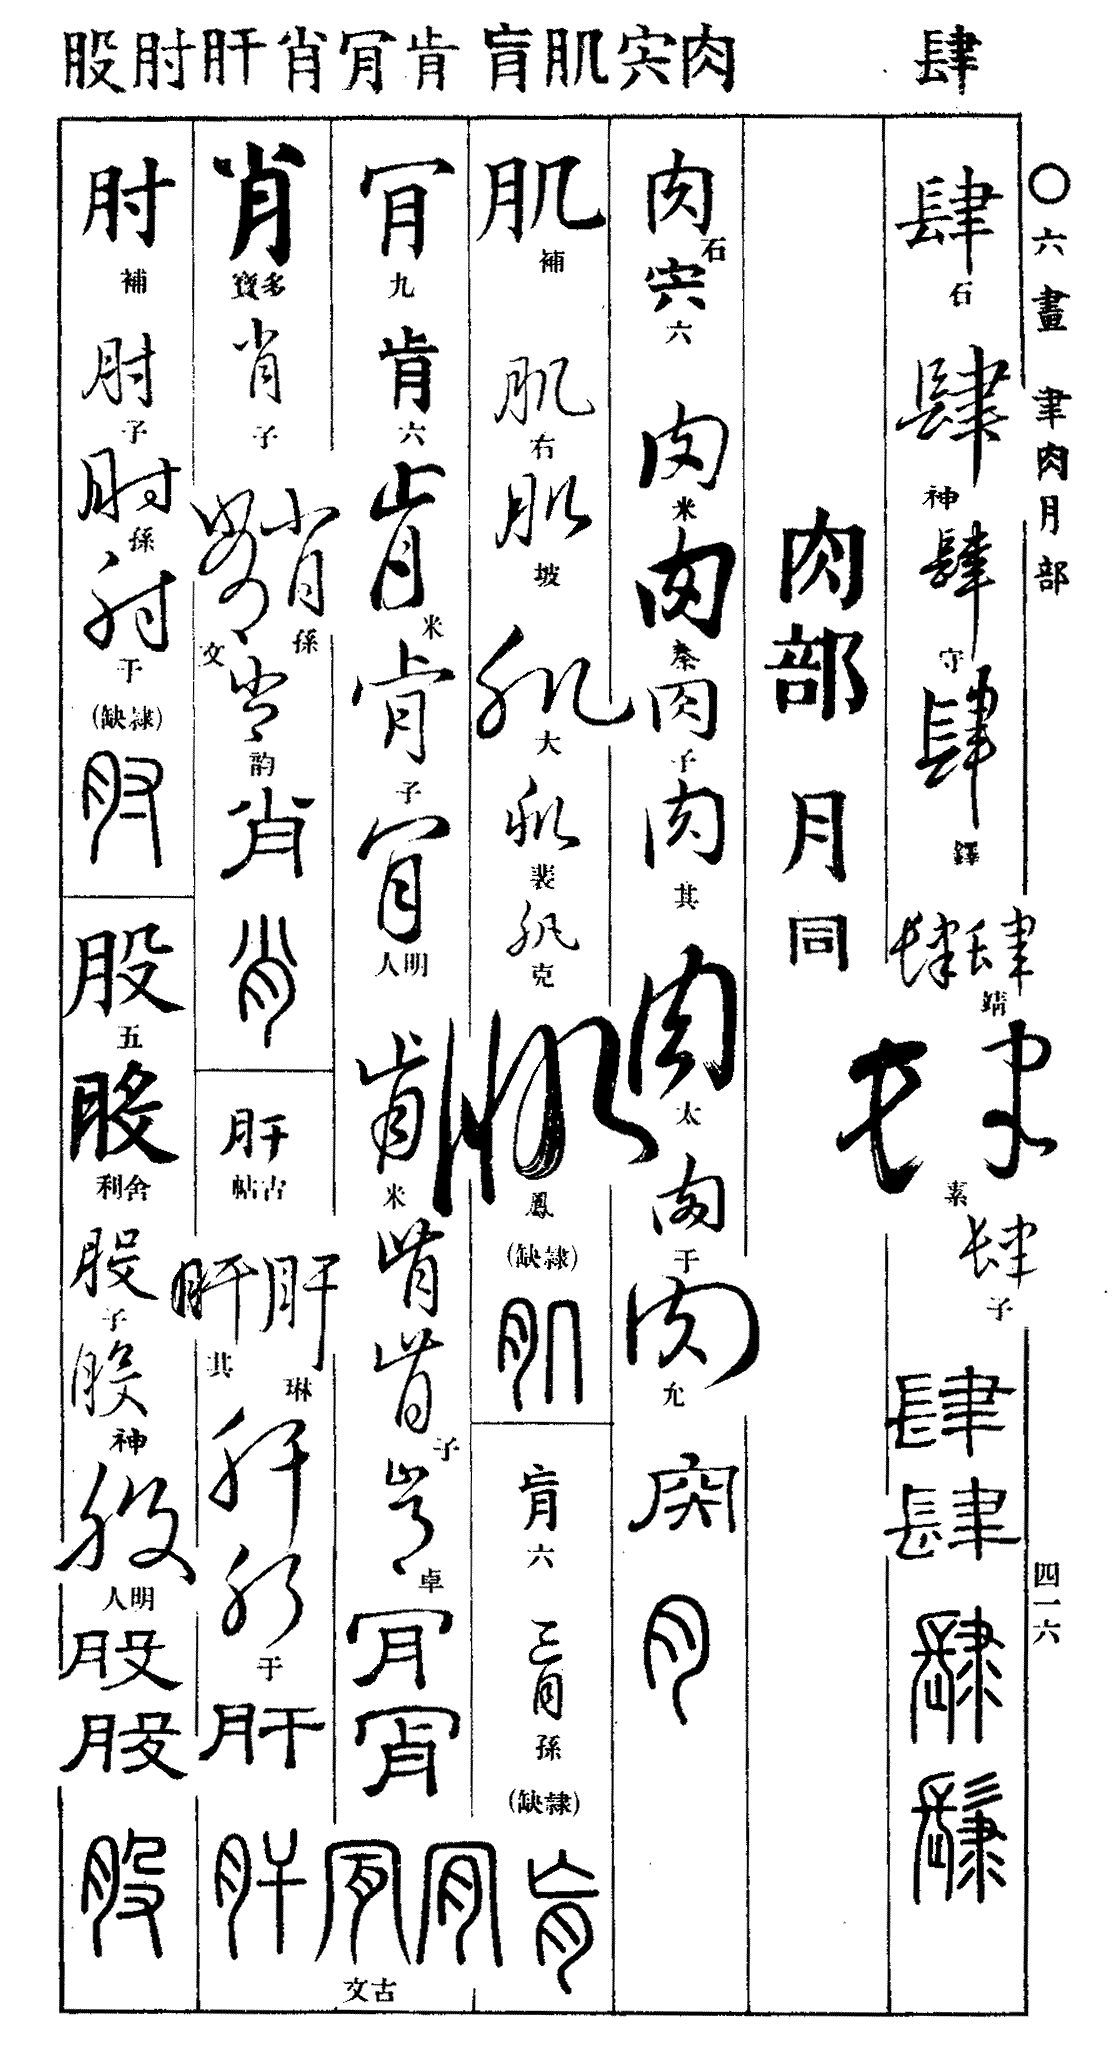 肆 肉 宍 肌 肓 肯 肎 肖 肝 肘 股
〇六畫 聿肉月部 四一六
肆 石
肆 神
肆 守
肆 鐸
肆 肆 靖
肆 素
肆 子
肆
肆
肉部 月同
肉 石
宍 六
肉 米
肉 秦
肉 子
肉 其
肉 太
肉 干
肉 允
肉
肉
肌 補
肌 右
肌 坡
肌 大
肌 裴
肌 克
肌 鳳
(缺隸)
肌
肓 六
肓 孫
(缺隸)
肓
肎 九
肯 六
肯 米
肯 子
肎 明人
肯 米
肯
肯 子
肯 卓
肎
肎
肎
古文
肖 多寶
肖 子
肖 孫
文
肖 韵
肖
肖
肝 古帖
肝 琳
肝 其
肝
肝 于
肝
肝
肘 補
肘 子
肘 孫
肘 于
(缺隸)
肘
股 五
股 舍利
股 子
股 神
股 明人
股
股
股